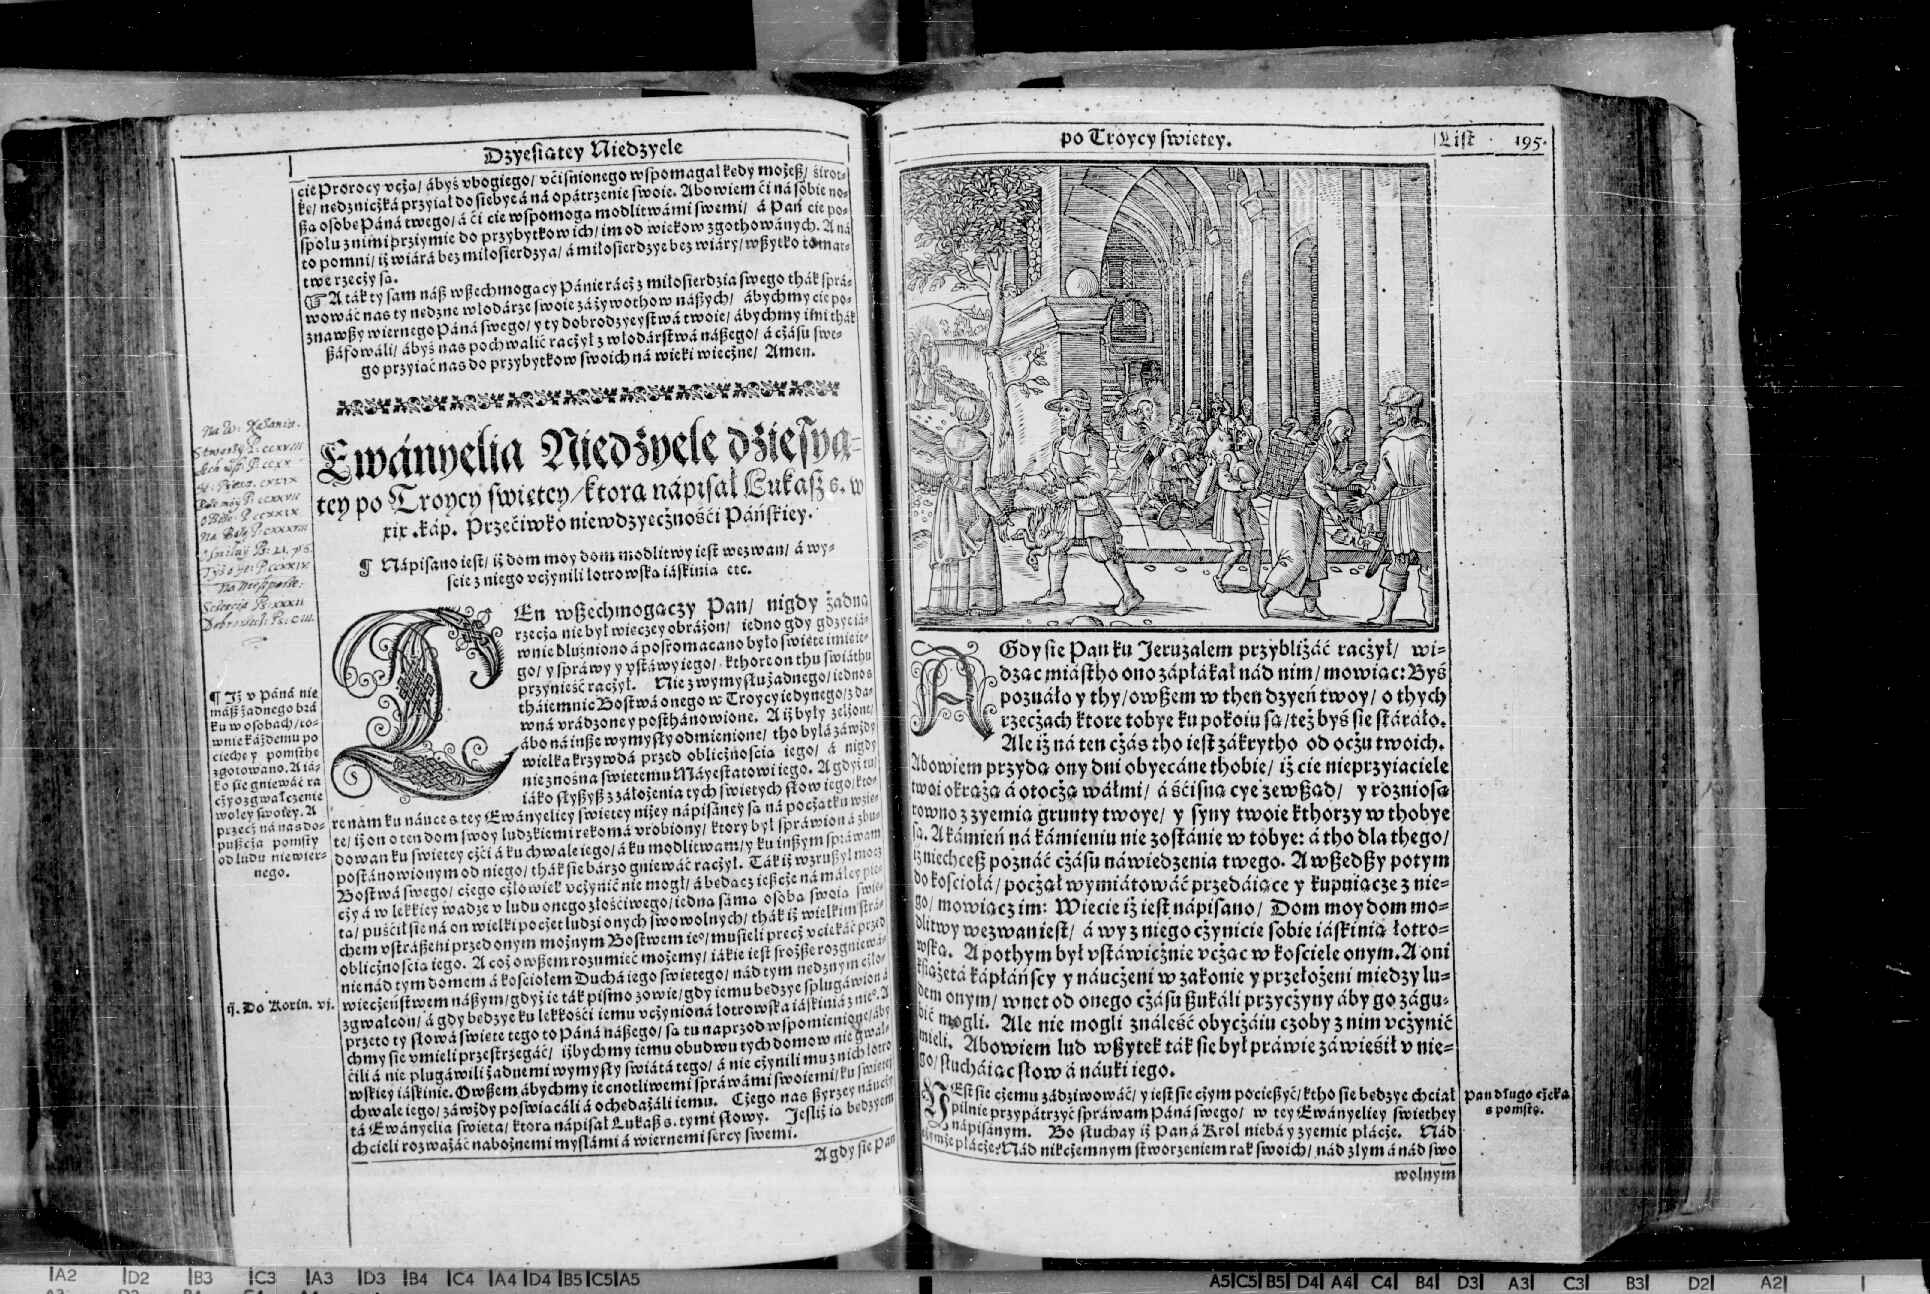 Dzyesiątey Niedzyele
cie Prorocy vcżą/ ábyś vbogiego/ vciśnionego wspomagał kedy możeß/ śirot-
kę/ nędzniczká przyiął do siebye á ná opátrzenie swoie. Abowiem ći ná sobie no-
ßą osobę Páná twego/ á ći cię wspomogą modlitwámi swemi/ á Pan cię po-
społu z nimi przyimie do przybytkow ich/ im od wiekow zgothowánych. A ná
to pomni/ iż wiárá bez miłosierdzya/ á miłosierdzye bez wiáry/ wßytko to mar-
twe rzecży są.
☞ A ták ty sam náß wßechmogący Pánie rácż z miłosierdzia swego thák sprá-
wowáć nas ty nędzne włodarze swoie zá żywothow náßych/ ábychmy cię po-
znawßy wiernego Páná swego/ y ty dobrodzyeystwá twoie/ ábychmy imi thák
ßáfowáli/ ábyś nas pochwalić racżył z włodárstwá náßego/ á cżásu swe-
go przyiąć nas do przybytkow swoich ná wieki wiecżne/ Amen.
Ewányelia Niedżyelę dżiesyą-
tey po Troycy swiętey/ ktorą nápisał Lukaß s. w
xix. káp. Przećiwko niewdzyęcżnośći Páńskiey.
¶ Nápisano iest/ iż dom moy dom modlitwy iest wezwan/ á wy-
ście z niego vcżynili lotrowską iáskinią etc.
TEn wßechmogączy Pan/ nigdy żadną
rzecżą nie był więcey obráżon/ iedno gdy gdzye iá-
wnie bluźniono á posromacano było święte imię ie-
go/ y spráwy y vstáwy iego/ kthore on thu świathu
przynieść racżył. Nie z wymysłu żadnego/ iedno s
tháiemnic Bostwá onego w Troycy iedynego/ z da-
wná vrádzone y posthánowione. A iż były zelżone/
ábo ná inße wymysły odmienione/ tho byłá záwżdy
wielka krzywdá przed oblicżnością iego/ á nigdy
nieznośna świętemu Máyestatowi iego. A gdyż tu/
iáko słyßyß z záłożenia tych świętych słow iego/ kto-
re nam ku náuce s tey Ewányeliey świętey niżey nápisáney są ná pocżątku wzię-
te/ iż on o ten dom swoy ludzkiemi rękomá vrobiony/ ktory był spráwion á zbu-
dowan ku świętey cżći á ku chwale iego/ á ku modlitwam/ y ku inßym spráwam
postánowionym od niego/ thák się bárzo gniewáć racżył. Ták iż wzrußył moc
Bostwá swego/ cżego cżłowiek vcżynić nie mogł/ á będąc ießcże ná máłey pie-
cży á w lekkiey wadze v ludu onego złośćiwego/ iedná sámá osobá swoią świę-
tą/ puśćił się ná on wielki pocżet ludzi onych swowolnych/ thák iż wielkim strá-
chem vstráßeni przed onym możnym Bostwem ie°/ musieli precż vciekáć przed
oblicżnością iego. A coż owßem rozumieć możemy/ iákie iest srożße rozgniewá-
nie nád tym domem á kościołem Duchá iego świętego/ nád tym nędznym cżło-
wiecżeństwem náßym/ gdyż ie ták pismo zowie/ gdy iemu będzye splugáwion á
zgwałcon/ á gdy będzye ku lekkośći iemu vcżynioná lotrowska iáskinia z nie°. A
przeto ty słowá święte tego to Páná náßego/ są tu naprzod wspomienione/ áby
chmy się vmieli przestrzegáć/ iżbychmy iemu obudwu tych domow nie gwał-
ćili á nie plugáwili żadnemi wymysły światá tego/ á nie cżynili mu z nich lotro
wskiey iáskinie. Owßem ábychmy ie cnotliwemi spráwámi swoiemi/ ku świętey
chwale iego/ záwżdy poświacáli á ochedażáli iemu. Cżego nas ßyrzey náucży
tá Ewányelia święta/ ktorą nápisał Lukaß s. tymi słowy. Jesliż ią będzyem
chcieli rozważáć nabożnemi myslámi á wiernemi sercy swemi.
A gdy się Pan
¶ Iż v Páná nie
máß żadnego brá
ku w osobach/ ro-
wnie káżdemu po
ciechę y pomsthę
zgotowano. A iá-
ko się gniewáć ra
cży o zgwałcenie
woley swoiey. A
przecż ná nas do-
pußcża pomsty
od ludu niewier-
nego.
ij. Do Korin. vj.
po Troycy świętey.
List 195.
A Gdy się Pan ku Jeruzalem przybliżáć racżył/ wi-
dząc miástho ono zápłákał nád nim/ mowiąc: Byś
poznáło y thy/ owßem w then dzyeń twoy/ o thych
rzecżach ktore tobye ku pokoiu są/ też byś się stáráło.
Ale iż ná ten cżás tho iest zákrytho od ocżu twoich.
Abowiem przydą ony dni obyecáne thobie/ iż cię nieprzyiaciele
twoi okrążą á otocżą wáłmi/ á śćisną cye zewßąd/ y rozniosą
rowno z zyemią grunty twoye/ y syny twoie kthorzy w thobye
są. A kámień ná kámieniu nie zostánie w tobye: á tho dla thego/
iż niechceß poznáć cżásu náwiedzenia twego. A wßedßy potym
do kościołá/ pocżął wymiátowáć przedáiące y kupuiącze z nie-
go/ mowiącz im: Wiecie iż iest nápisano/ Dom moy dom mo-
dlitwy wezwan iest/ á wy z niego cżynicie sobie iáskinią łotro-
wską. A pothym był vstáwicżnie vcżąc w kościele onym. A oni
książętá kápłáńscy y náucżeni w zakonie y przełożeni miedzy lu-
dem onym/ wnet od onego cżásu ßukáli przycżyny áby go zágu-
bić mogli. Ale nie mogli ználeść obycżáiu czoby z nim vcżynić
mieli. Abowiem lud wßytek ták się był práwie záwieśił v nie-
go/ słucháiąc słow á náuki iego.
YEst się cżemu zádziwowáć/ y iest się cżym pocießyć/ ktho się będzye chciał
pilnie przypátrzyć spráwam Páná swego/ w tey Ewányeliey świethey
nápisánym. Bo słuchay iż Pan á Krol niebá y zyemie płácże. Nád
cżymże płácże? Nád nikcżemnym stworzeniem rąk swoich/ nád złym á nád swo
wolnym
Pan długo cżeka
s pomstą.
A2 D2 B3 C3 A3 D3 B4 C4 A4 D4 B5 C5 A5
A5 C5 B5 D4 A4 C4 B4 D3 A3 C3 B3 D2 A2